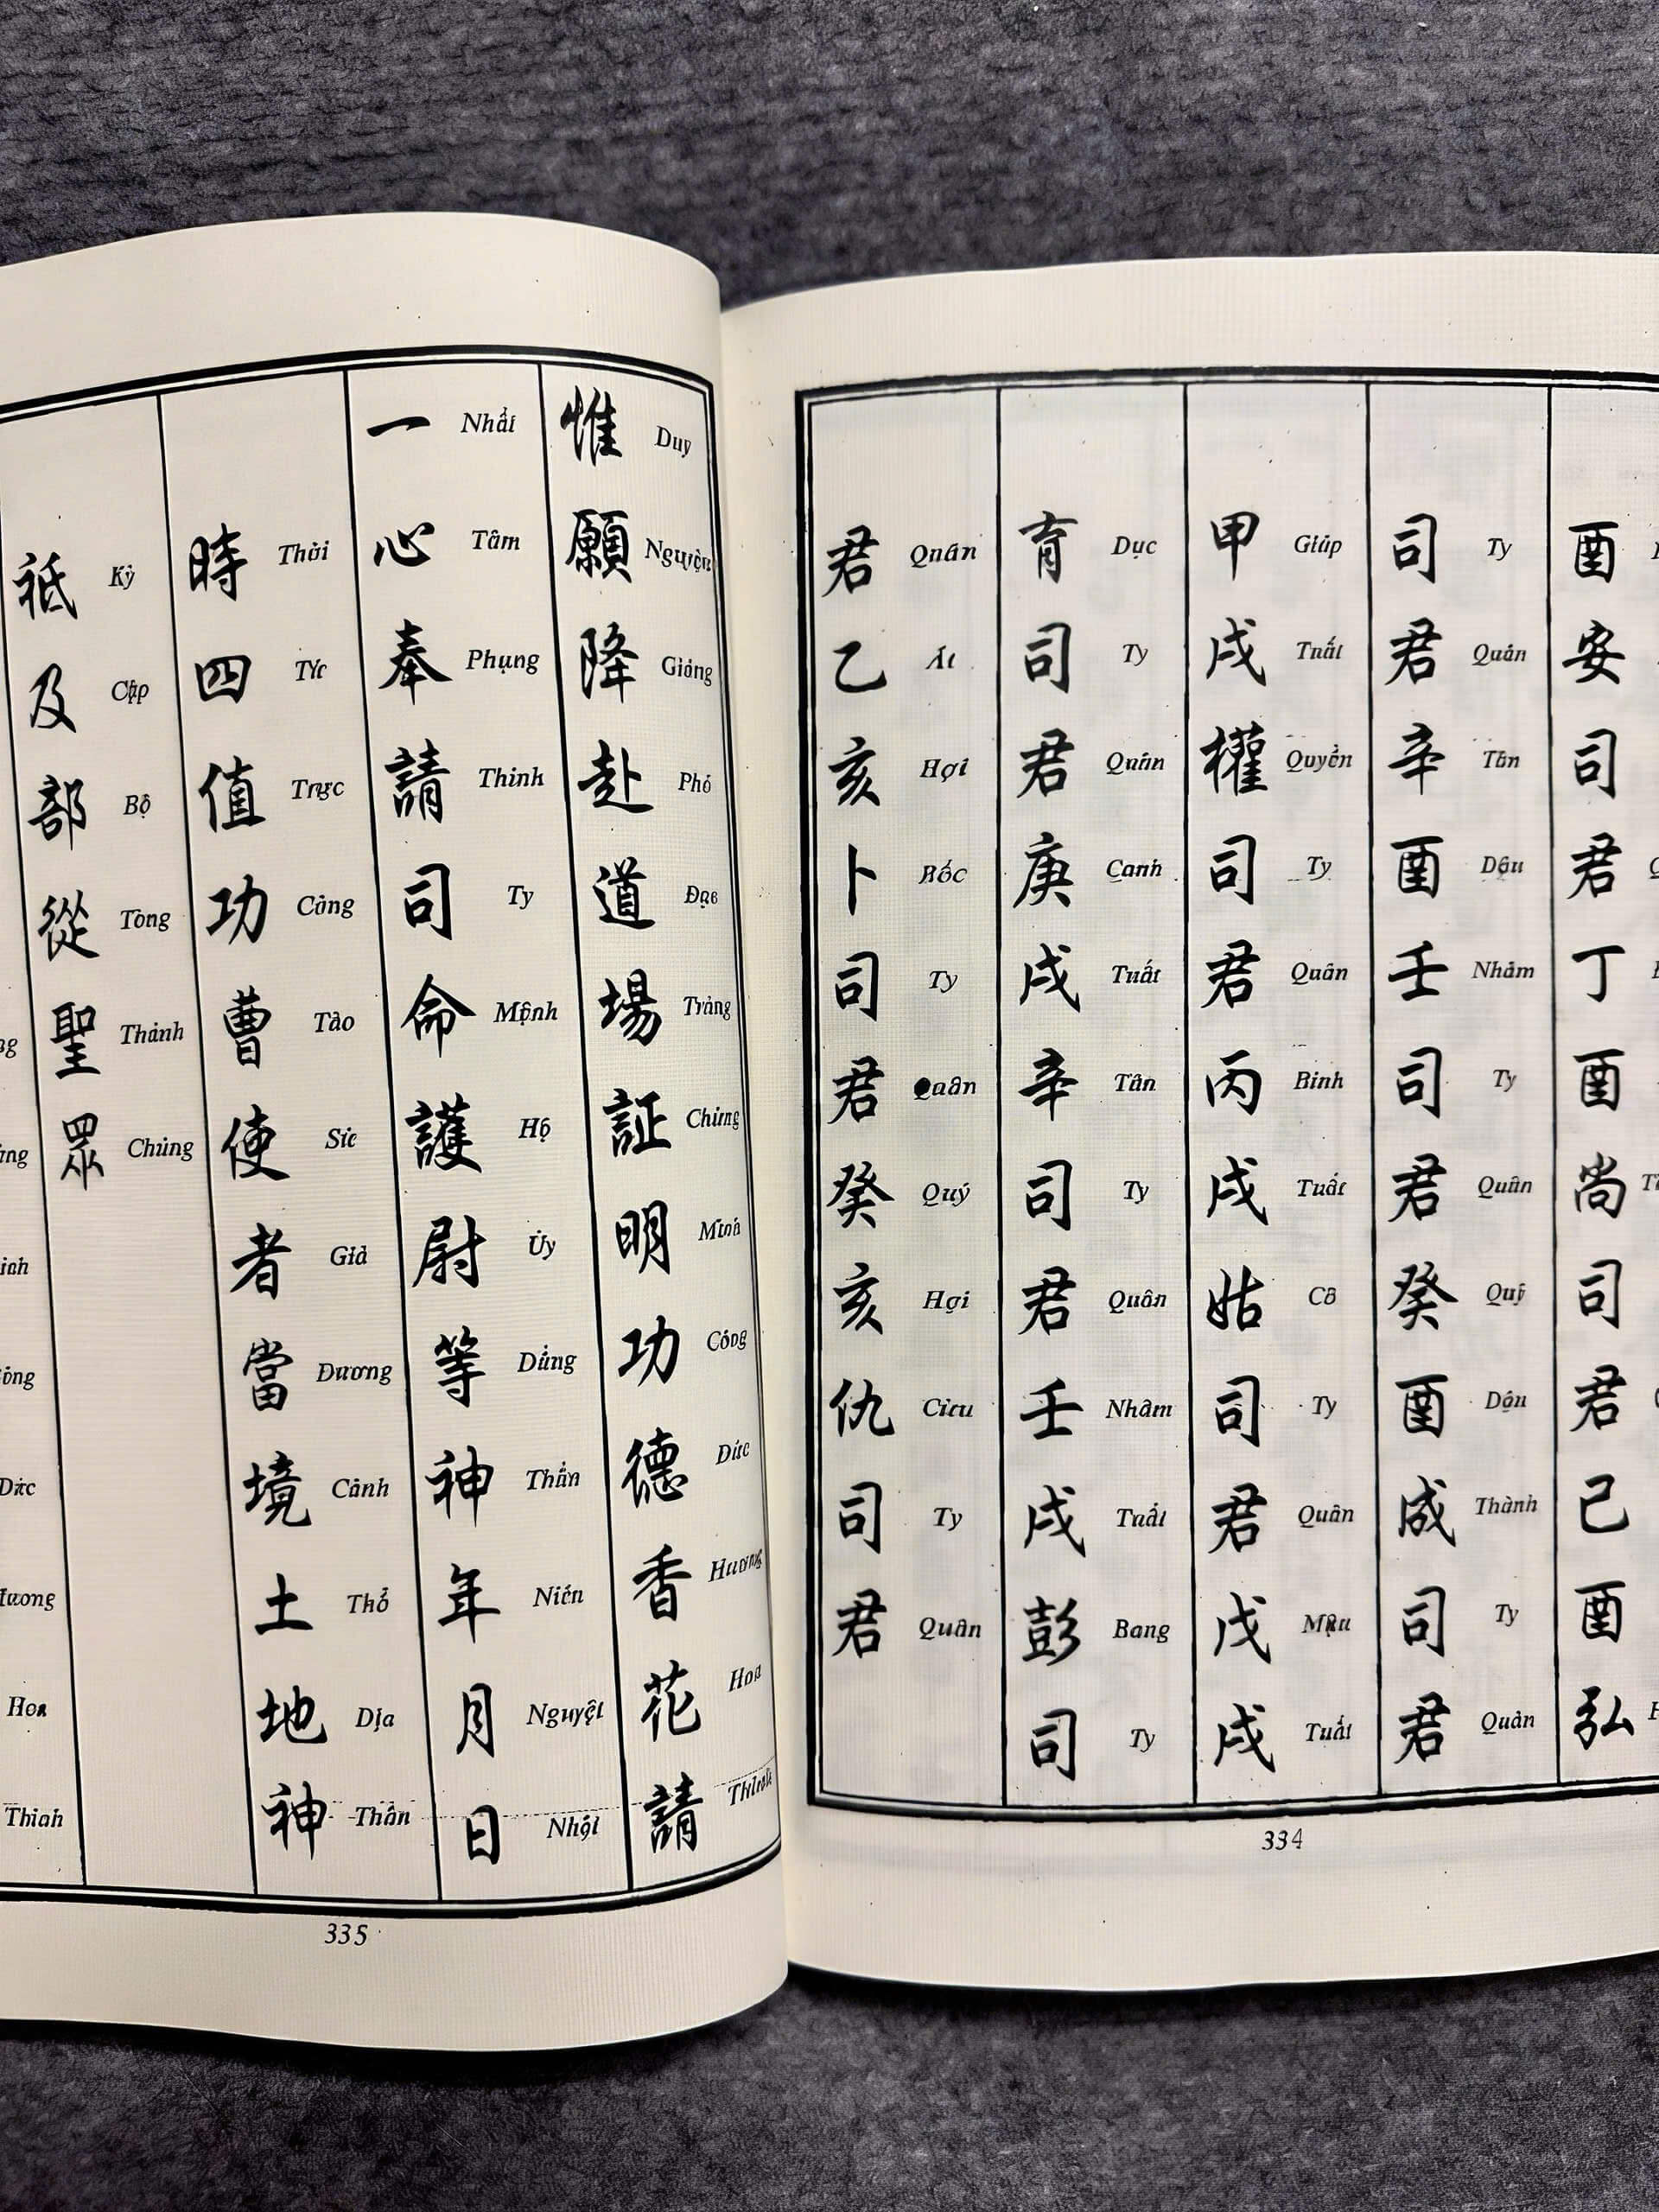 酉安司君丁酉尚司君己酉弘
司君辛酉壬司君癸酉成司君
Ty Quân Tân Dậu Nhâm Ty Quân Quý Dậu Thành Ty Quân
甲戌權司君丙戌姑司君戊戌
Giáp Tuất Quyền Ty Quân Bính Tuất Cô Ty Quân Mậu Tuất
育司君庚戌辛司君壬戌彭司
Dục Ty Quân Canh Tuất Tân Ty Quân Nhâm Tuất Bang Ty
君乙亥卜司君癸亥仇司君
Quân Ất Hợi Bốc Ty Quân Quý Hợi Cừu Ty Quân
334
惟願降赴道場証明功德香花請
Duy Nguyện Giáng Phó Đạo Tràng Chứng Minh Công Đức Hương Hoa Thỉnh
一心奉請司命護尉等神年月日
Nhất Tâm Phụng Thỉnh Ty Mệnh Hộ Úy Đẳng Thần Niên Nguyệt Nhật
時四值功曹使者當境土地神
Thời Tứ Trực Công Tào Sứ Giả Đương Cảnh Thổ Địa Thần
祇及部從聖眾
Kỳ Cập Bộ Tòng Thánh Chúng
Đức Hương Hoa Thỉnh
335